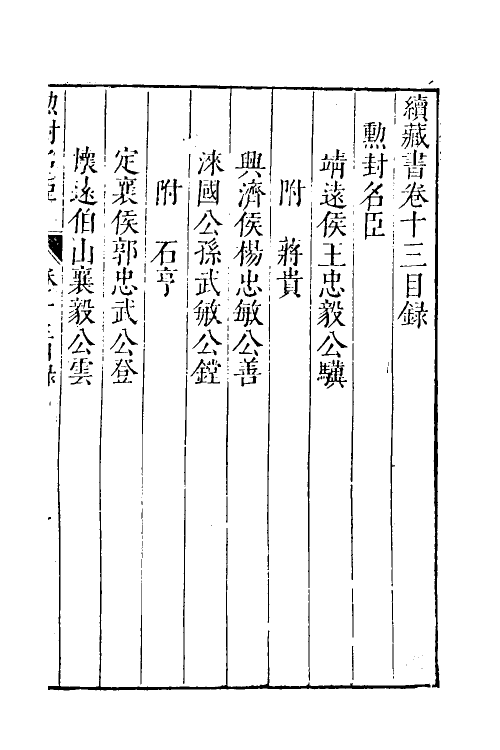 續藏書卷十三目録
勲封名臣
靖逺侯王忠毅公驥
附　蔣貴
興濟侯楊忠敏公善
淶國公孫武敏公鏜
附　石亨
定襄侯郭忠武公登
懐逺伯山襄毅公雲